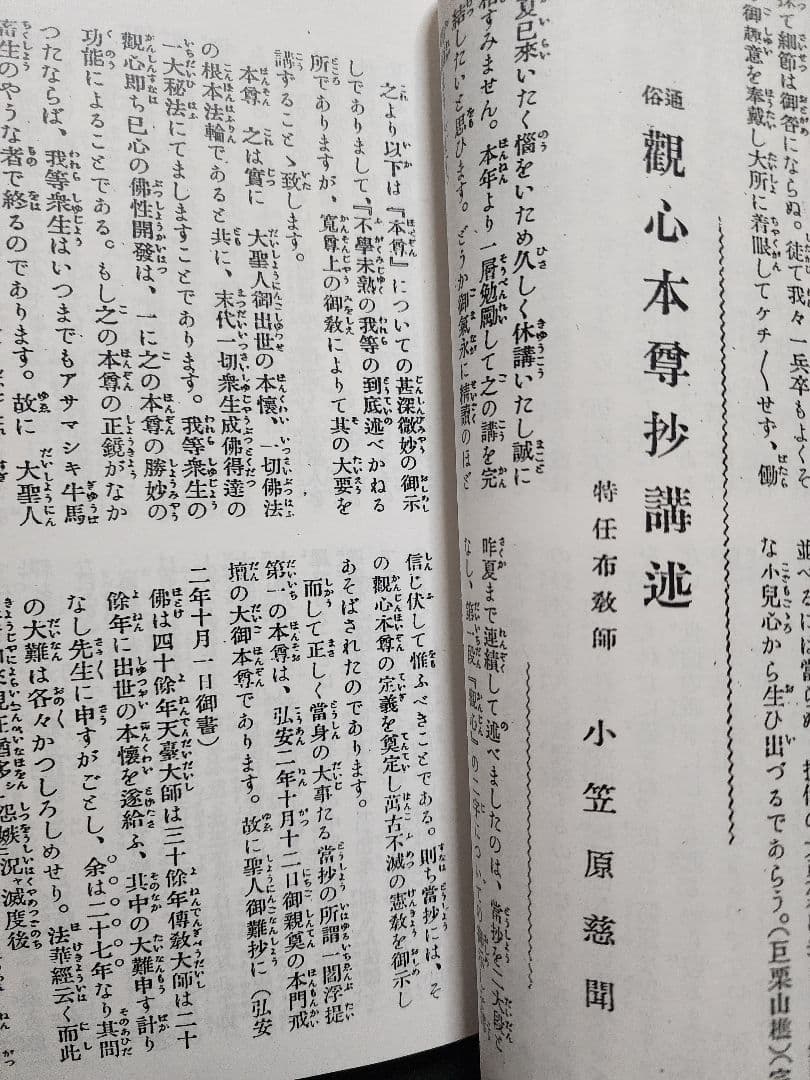 御趣意を奉戴し大所に着眼してケチ〳〵せず、働
な小兒心から生ひ出づるであらう。(巨栗山樵)
通俗 觀心本尊抄講述
特任布教師 小笠原慈聞
夏已來いたく惱をいため久しく休講いたし誠に
相すみません。本年より一層勉勵して之の講を完
結したいと思ひます。どうか御氣永に精讀のほど
昨夏まで連續して述べましたのは、當抄を二大段と
なし、第一段『觀心』の二字についての
之より以下は『本尊』についての甚深微妙の御示
しでありまして、『不學未熟の我等の到底述べかねる
所でありますが、寛尊上の御敎によりて其の大要を
講ずることゝ致します。
本尊 之は實に 大聖人御出世の本懷、一切佛法
の根本法輪であると共に、末代一切衆生成佛得達の
一大秘法にてましますことであります。我等衆生の
觀心即ち已心の佛性開發は、一に之の本尊の勝妙の
功能によることである。もし之の本尊の正鏡がなか
つたならば、我等衆生はいつまでもアサマシキ牛馬
畜生のやうな者で終るのであります。故に 大聖人
信じ伏して惟ふべきことである。則ち當抄には、そ
の觀心本尊の定義を奠定し萬古不滅の憲敎を御示し
あそばされたのであります。
而して正しく當身の大事たる當抄の所謂一閻浮提
第一の本尊は、弘安二年十月十二日御親奠の本門戒
壇の大御本尊であります。故に聖人御難抄に(弘安
二年十月一日御書)
佛は四十餘年天臺大師は三十餘年傳敎大師は二十
餘年に出世の本懷を遂給ふ、其中の大難申す計り
なし先生に申すがごとし、余は二十七年なり其間
の大難は各々かつしろしめせり。法華經云く而此